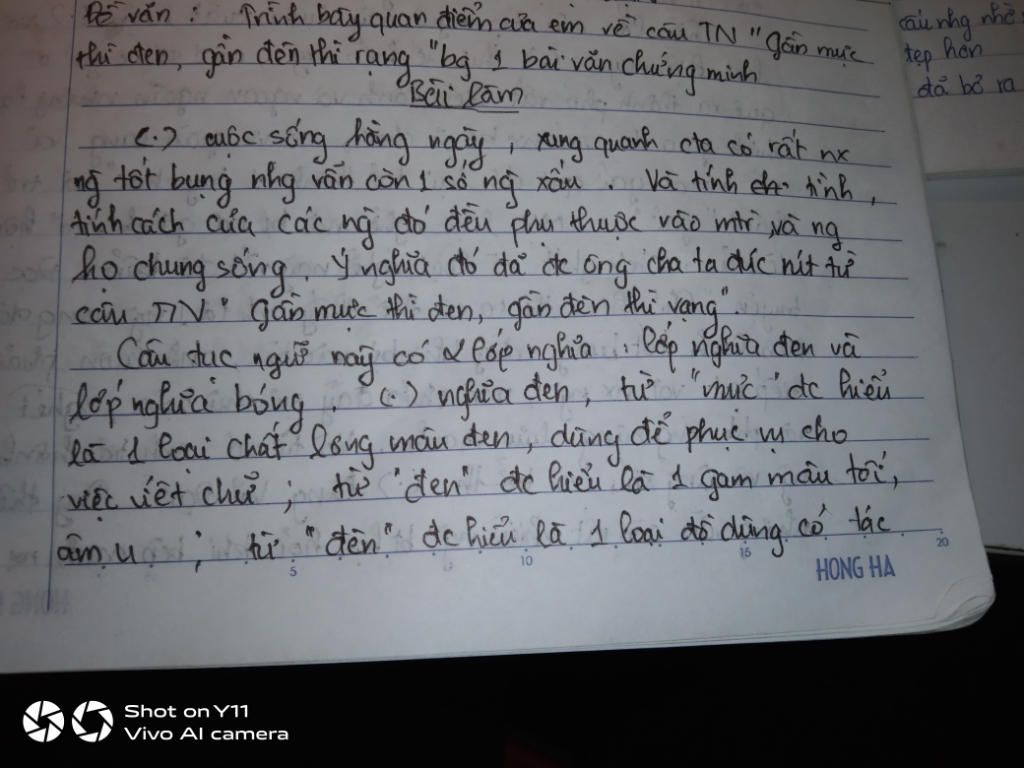 Đề văn : Trình bày quan điểm của em về câu TN "gần mực
thì đen, gần đèn thì rạng "bg 1 bài văn chứng minh
Bài làm
(.) cuộc sống hằng ngày, xung quanh cta có rất nx
ng tốt bụng nhg vẫn còn 1 số ng xấu . Và tính tình,
tính cách của các ng đó đều phụ thuộc vào mtr và ng
họ chung sống. Ý nghĩa đó đã đc ông cha ta đúc nít từ
câu TN "Gần mực thì đen, gần đèn thì vạng".
Câu tục ngữ này có 2 lớp nghĩa : lớp nghĩa đen và
lớp nghĩa bóng. (.) nghĩa đen, từ "mực" đc hiểu
là 1 loại chất lỏng màu đen, dùng để phục vụ cho
việc viết chữ ; từ "đen" đc hiểu là 1 gam màu tối,
âm u ; từ "đèn" đc hiểu là 1 loại đồ dùng có tác
5 10 15 20
HONG HA
câu nhg nhờ
tẹp hơn
đã bỏ ra
Shot on Y11
Vivo AI camera